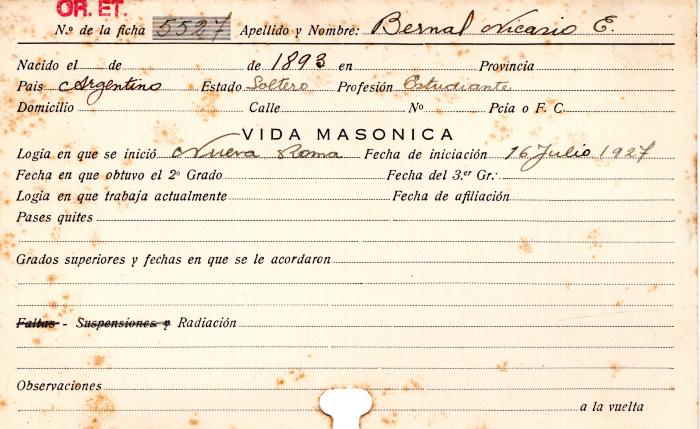 OR. ET.
N.º de la ficha 5527 Apellido y Nombre: Bernal Nicasio E.
Nacido el de de 1893 en Provincia
Pais Argentino Estado Soltero Profesión Estudiante
Domicilio Calle Nº Pcia o F. C.
VIDA MASONICA
Logia en que se inició Nueva Roma Fecha de iniciación 16 Julio 1927
Fecha en que obtuvo el 2º Grado Fecha del 3.er Gr.:
Logia en que trabaja actualmente Fecha de afiliación
Pases quites
Grados superiores y fechas en que se le acordaron
Faltas - Suspensiones y Radiación
Observaciones
a la vuelta